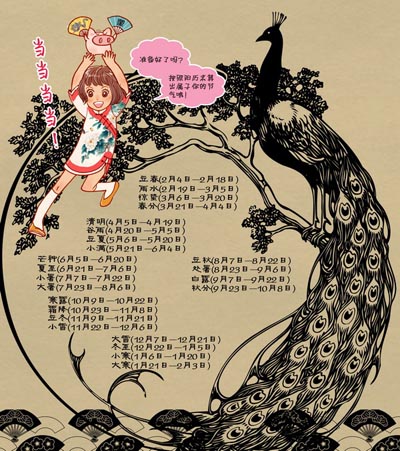 当当当当！
准备好了吗？
按照阳历去算
出属于你的节
气哦！
立春(2月4日—2月18日)
雨水(2月19日—3月5日)
惊蛰(3月6日—3月20日)
春分(3月21日—4月4日)
清明(4月5日—4月19日)
谷雨(4月20日—5月5日)
立夏(5月6日—5月20日)
小满(5月21日—6月4日)
芒种(6月5日—6月20日)
夏至(6月21日—7月6日)
小暑(7月7日—7月22日)
大暑(7月23日—8月6日)
立秋(8月7日—8月22日)
处暑(8月23日—9月6日)
白露(9月7日—9月22日)
秋分(9月23日—10月8日)
寒露(10月9日—10月22日)
霜降(10月23日—11月8日)
立冬(11月9日—11月21日)
小雪(11月22日—12月6日)
大雪(12月7日—12月21日)
冬至(12月22日—1月5日)
小寒(1月6日—1月20日)
大寒(1月21日—2月3日)